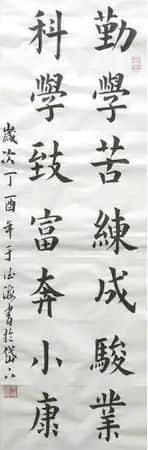 勤學苦練成駿業
科學致富奔小康
歲次丁酉年于德海書於岱下